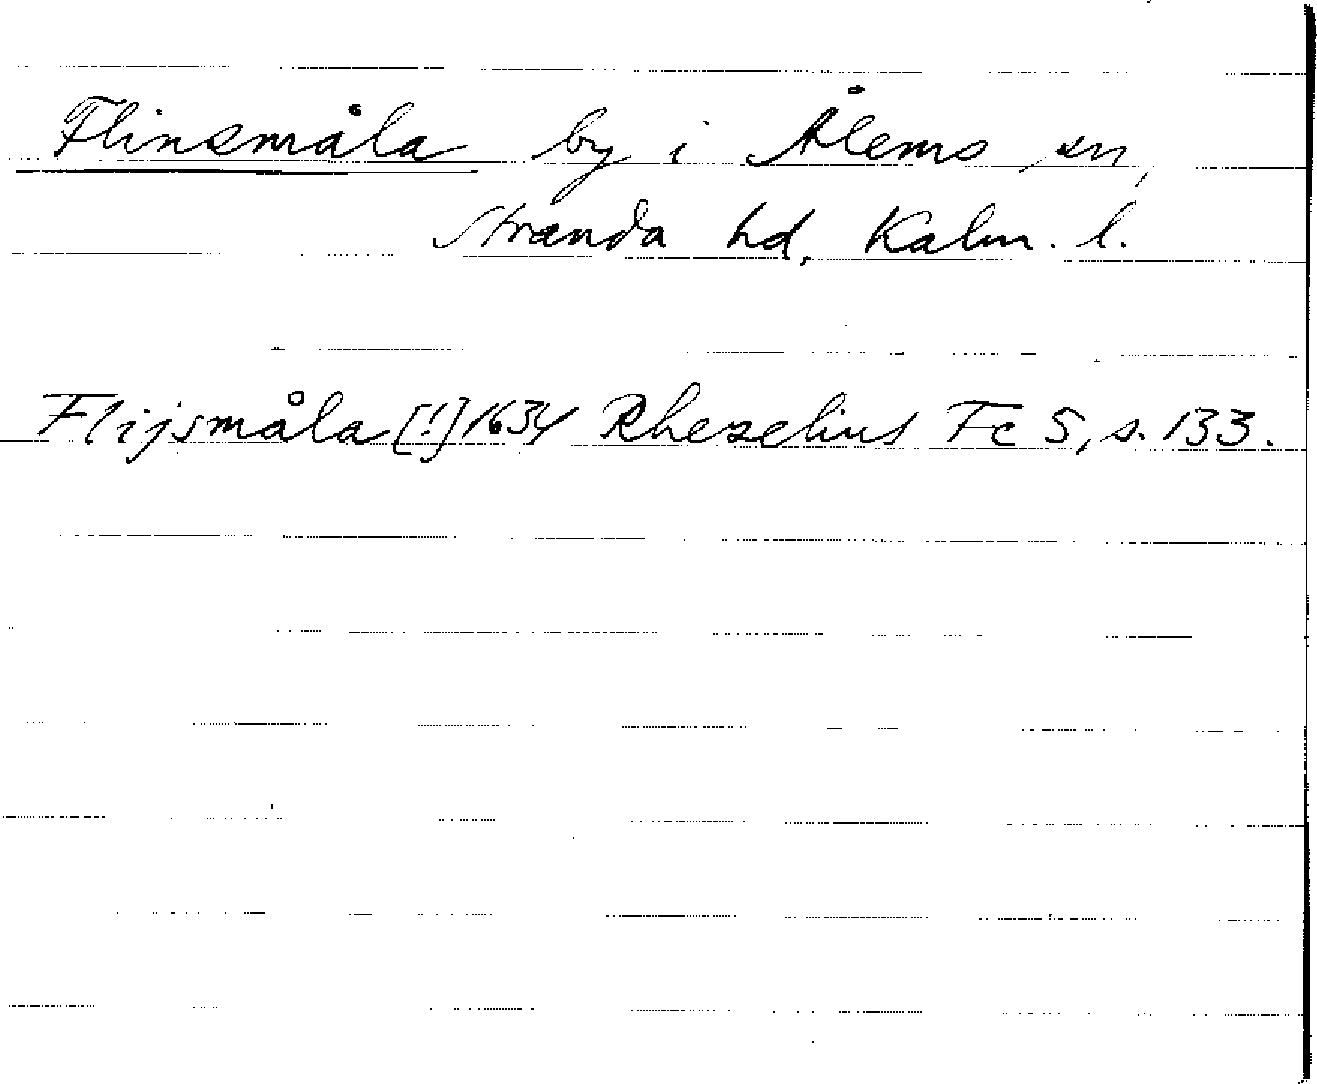 Flinsmåla by i Ålems sn,
Stranda hd, Kalm. l.
Flijsmåla [!] 1634 Rhezelius Fc 5, s. 133.